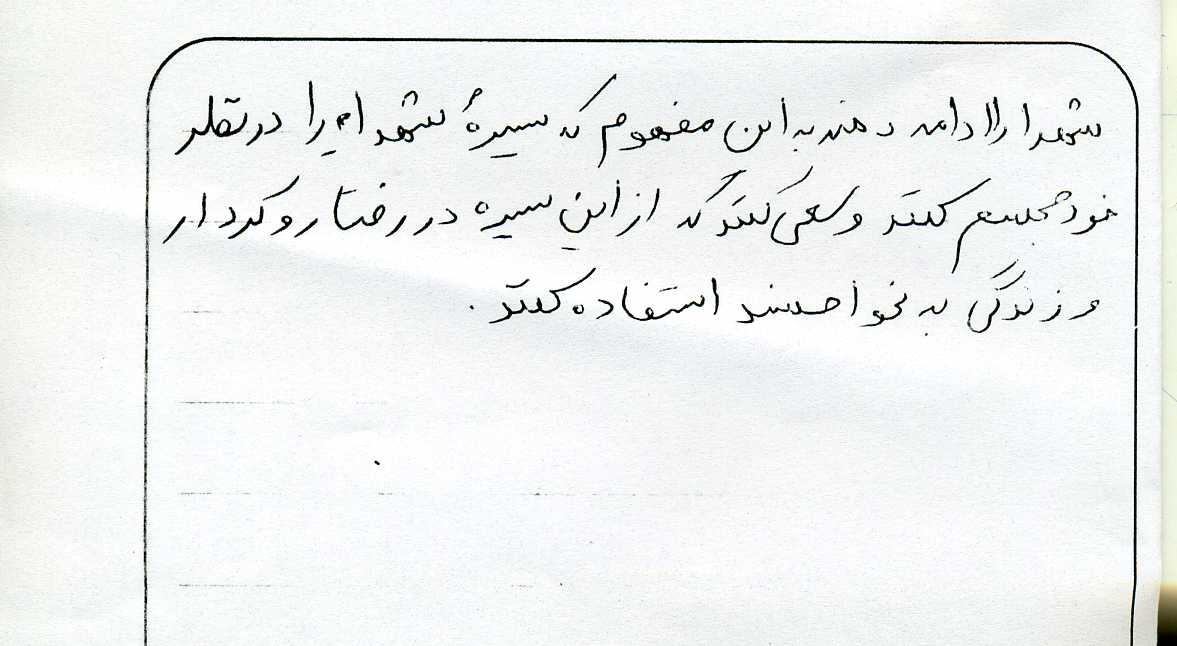 شهدا را ادامه دهند به این مفهوم که سیرهٔ شهداء را در نظر
خود مجسم کنند و سعی کنند که از این سیره در رفتار و کردار
و زندگی به نحو احسند استفاده کنند.